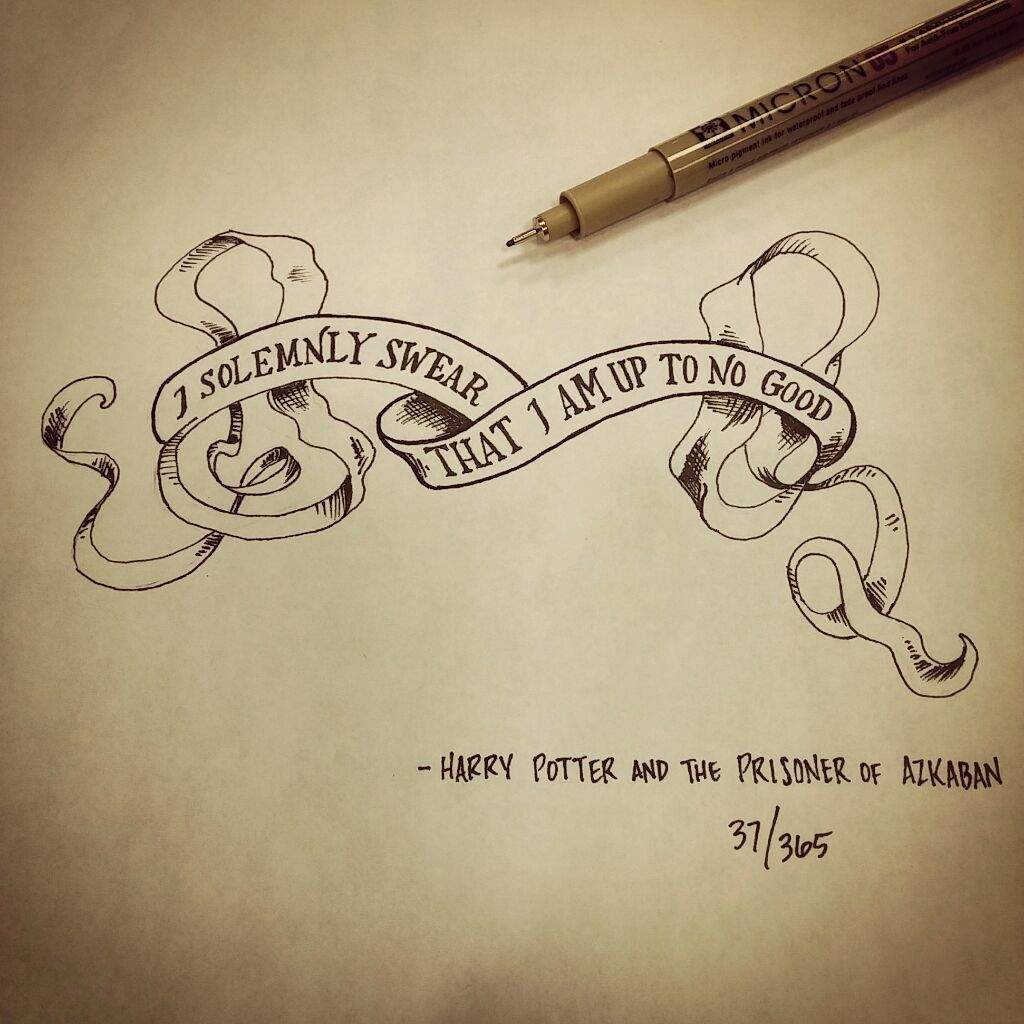 MICRON 05
Micro pigment ink for waterproof and fade proof fine lines
I SOLEMNLY SWEAR
THAT I AM UP TO NO GOOD
- HARRY POTTER AND THE PRISONER OF AZKABAN
37/365